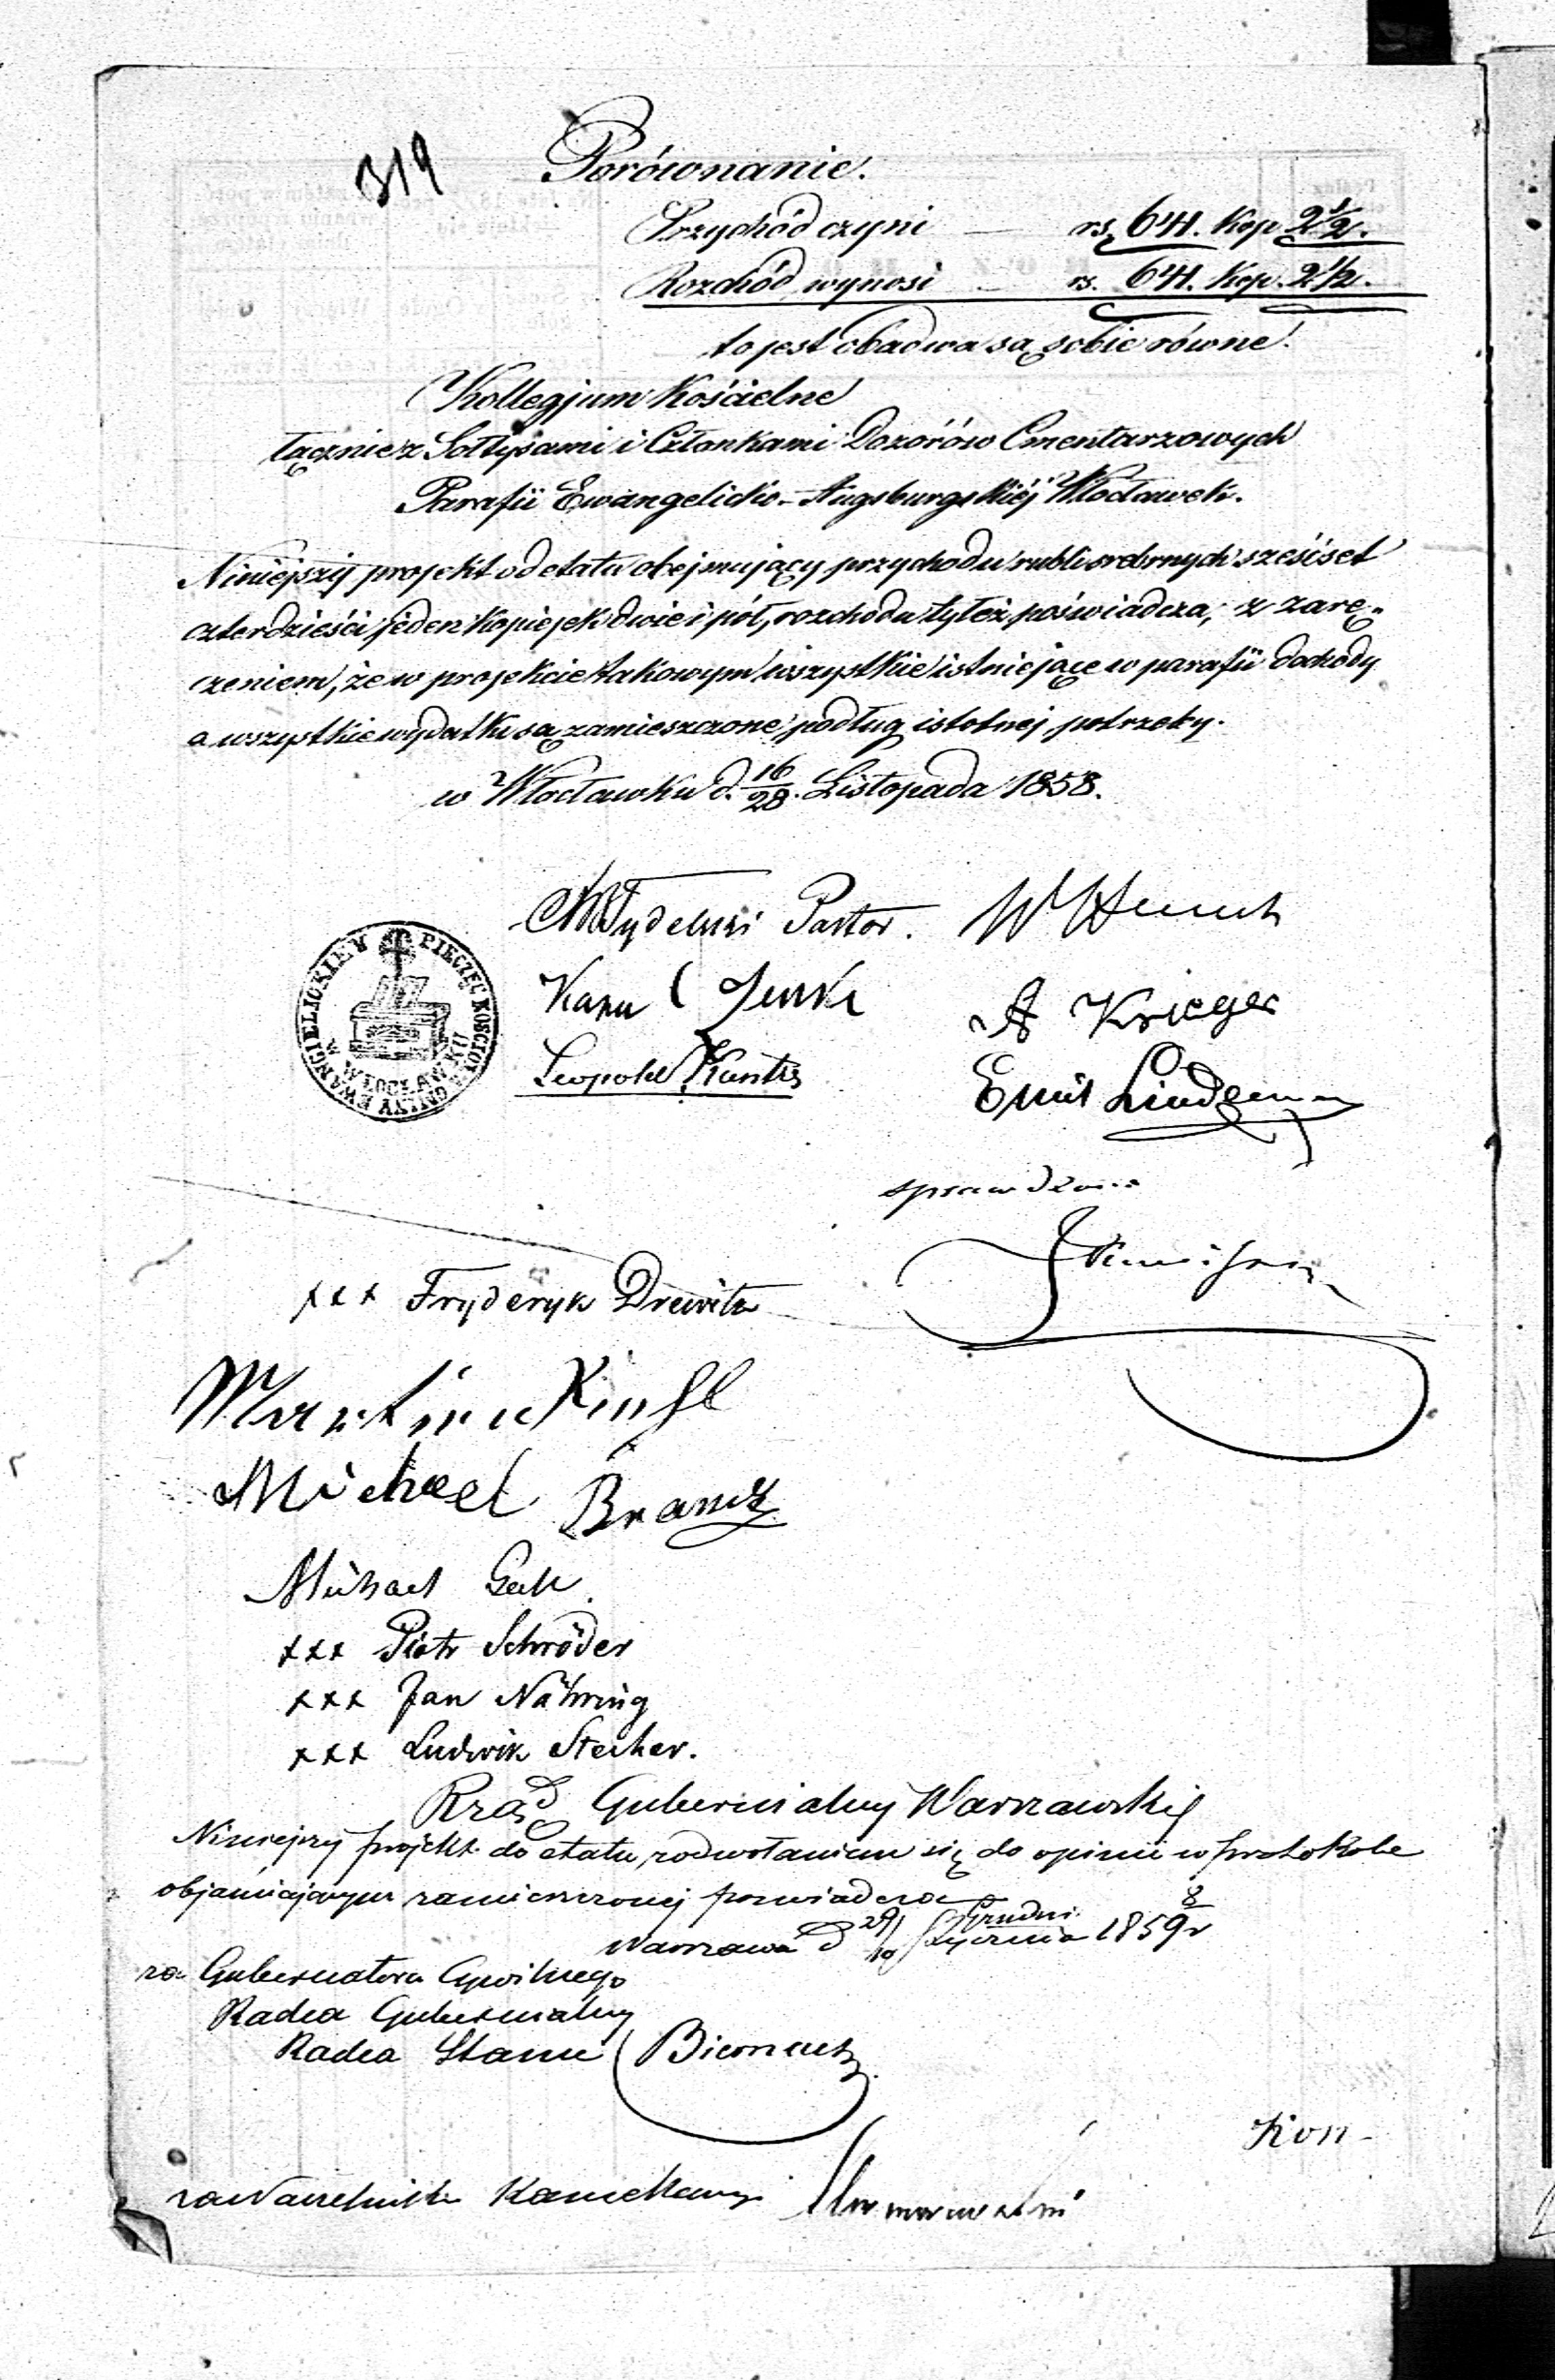 319
Porównanie.
Przychód czyni — rs. 641. Kop 2½.
Rozchód wynosi — rs. 641. Kop. 2½.
to jest obadwa są sobie równe.
Kollegjum Kościelne
łącznie z Sołtysami i Członkami Dozorów Cmentarzowych
Parafii Ewangelicko-Augsburgskiéj Włocławek.
Niniejszy projekt od etatu obejmujący przychodu rubli srebrnych sześćset
czterdzieści jeden kopiejek dwie i pół, rozchodu tyleż poświadcza, z zarę„
czeniem, że w projekcie takowym wszystkie istniejące w parafii dochody
a wszystkie wydatki są zamieszczone podług istotnej potrzeby.
w Włocławku d. 16/28. Listopada 1858.
Pastor.
PIECZĘĆ KOŚCIOŁA GMINY EWANGIELICKIEY
W WŁOCŁAWKU
A Krieger
Leopold
Emil Lindeman
sprawdzono
xxx Fryderyk Drewitz
Martin
Michael Brandt
Michael
xxx Piotr Schröder
xxx Jan Nähring
xxx Ludwik Stecher.
Rząd Gubernialny Warszawski
Niniejszy projekt do etatu, z odwołaniem się do opinii w protokole
objaśniającym zamieszczonej poświadcza
Warszawa d 29/10 Grudni. Stycznia 1859 r 8
za Gubernatora Cywilnego
Radca Gubernialny
Radca Stanu Biernacki
Kon-
za Naczelnika Kancellaryi